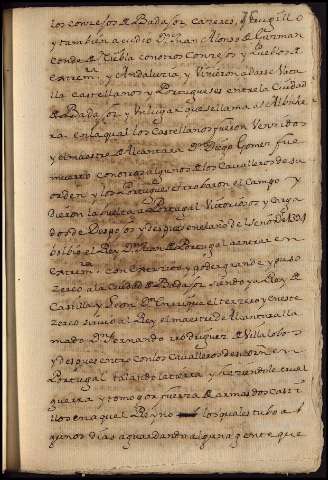 los conzejos de Badajoz, Caçeres, y Trugillo
y tambien acudio Dn Juan Alonso de Guzman
Conde de Niebla con otros Conzejos y Pueblos de
Extrem.ra y Andaluzia, y vinieron a darse Vata
lla Castellanos y Portugueses entre la Ciudad
de Badajoz y un lugar que se llama el Albuhe
ra en la qual los Castellanos fueron Venzidos
y el maestre de Alcantara Dn Diego Gomez fue
muerto con otros algunos de los Cavalleros de su
orden y los Portugueses robaron el Campo y
dieron la buelta a Portugal Vitoriosos y Carga
dos de Despojos y despues en el año de el Señor de
bolbio el Rey Dn Juan de Portugal a entrar en
Extrem.ra con exercito y poder grande y puso
zerco a la Ciudad de Badajoz siendo ya Rey de
Castilla y Leon Dn Enrrique el terzero y en este
zerco sirvio al Rey el maestre de Alcantara lla
mado Dn Fernando rodriguez de Villalobos
y despues entro con los Cavalleros de su orn en
Portugal talando la tierra y haziendole cruel
guerra y tomo por fuerza de armas dos Casti
llos en aquel Reyno los quales tubo a
gunos dias aguardando alguna gente que